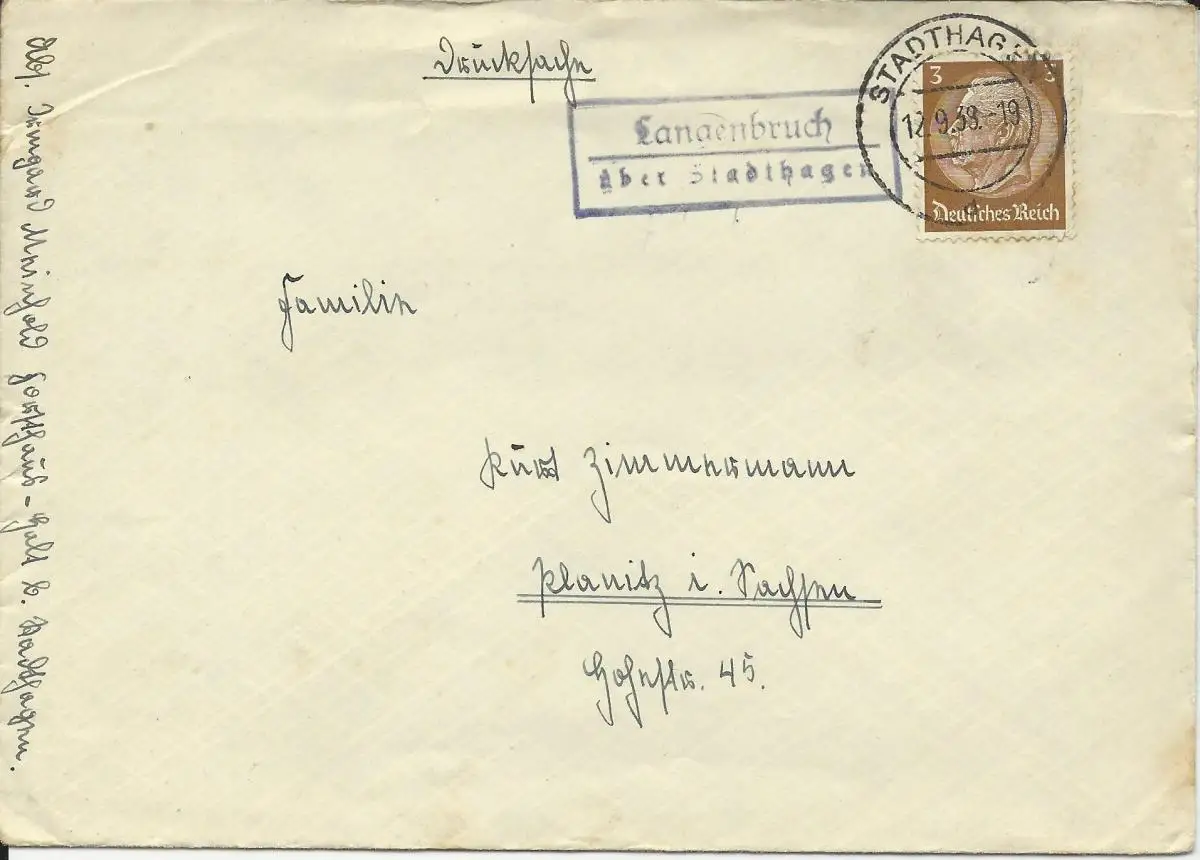 Drucksache
Langenbruch
über Stadthagen
STADTHAGEN
12.9.38.-19
3 3
Deutsches Reich
Familie
Kurt Zimmermann
Planitz i. Sachsen
Hohestr. 45.
Abs. Irmgard Meinhold Forsthaus - b. Stadthagen.